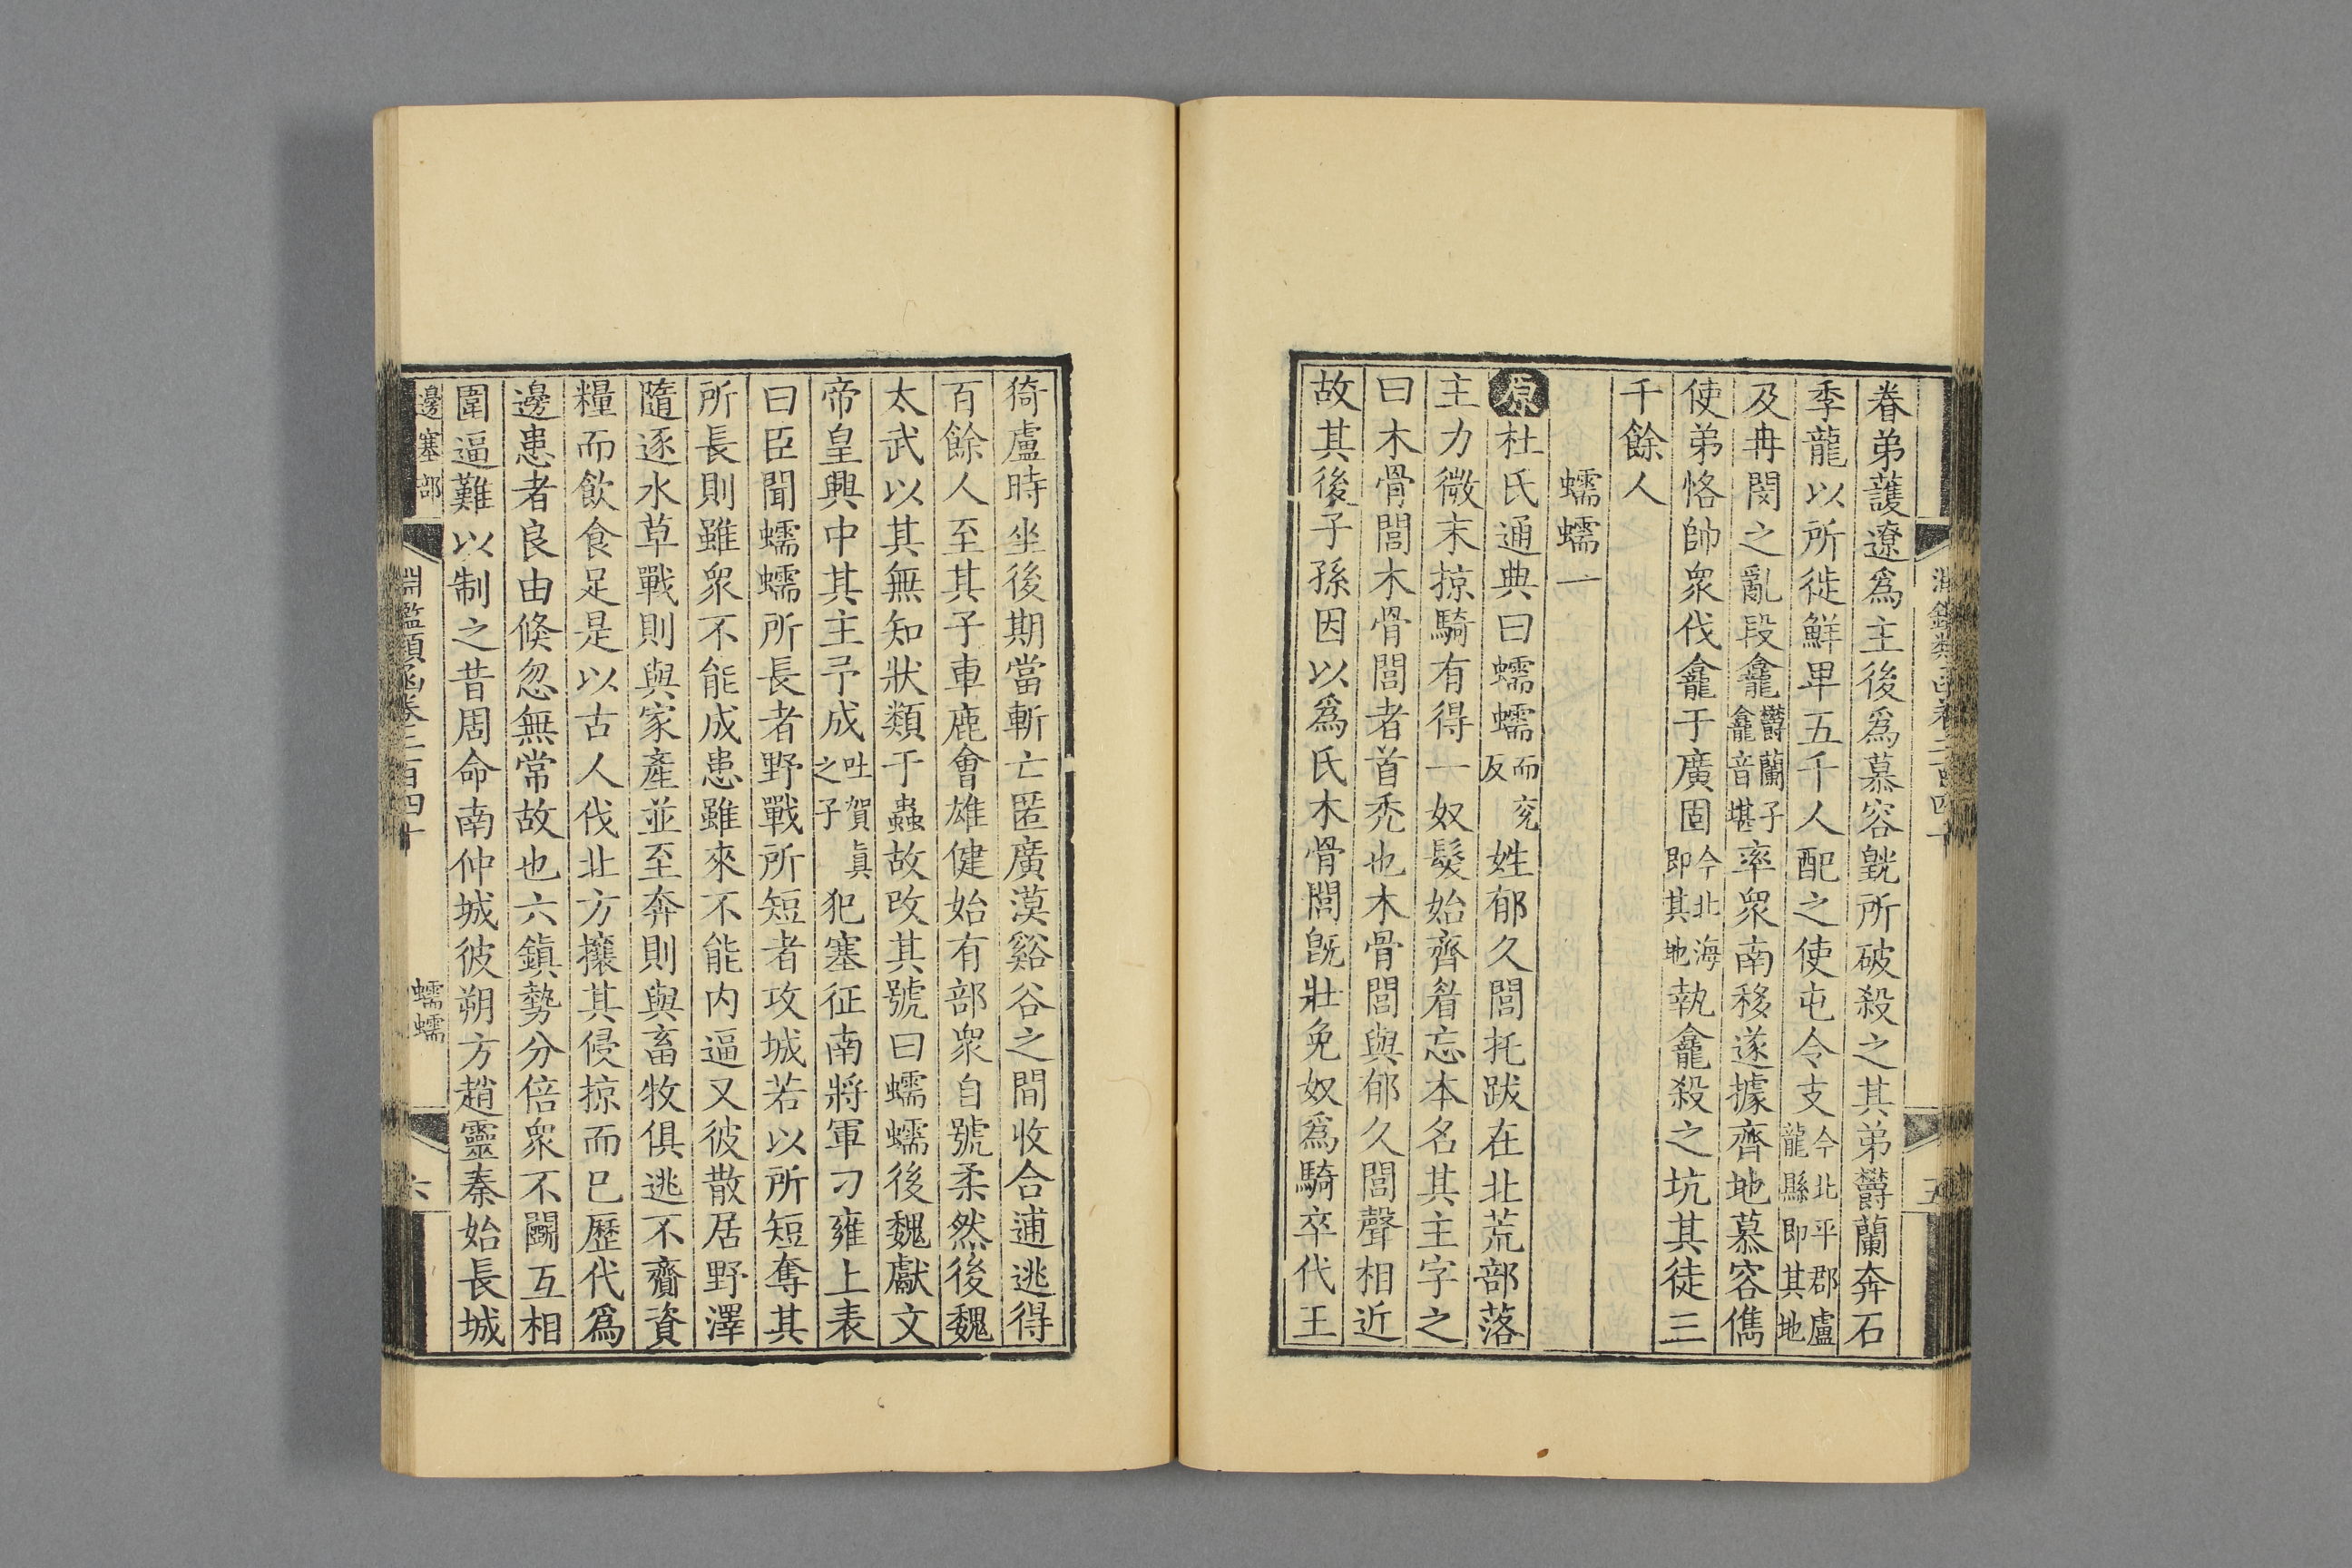 眷弟護遼爲主後爲慕容皝所破殺之其弟鬱蘭奔石
季龍以所徙鮮卑五千人配之使屯令支今北平郡盧龍縣即其地
及冉閔之亂段龕鬱蘭子龕音堪率衆南移遂據齊地慕容儁
使弟恪帥衆伐龕于廣固今北海即其地執龕殺之坑其徒三
千餘人
蠕蠕一
原杜氏通典曰蠕蠕而兖反姓郁久閭托跋在北荒部落
主力微末掠騎有得一奴髮始齊眉忘本名其主字之
曰木骨閭木骨閭者首禿也木骨閭與郁久閭聲相近
故其後子孫因以爲氏木骨閭旣壯免奴爲騎卒代王
猗盧時坐後期當斬亡匿廣漠谿谷之間收合逋逃得
百餘人至其子車鹿會雄健始有部衆自號柔然後魏
太武以其無知狀類于蟲故改其號曰蠕蠕後魏獻文
帝皇興中其主予成吐賀眞之子犯塞征南將軍刁雍上表
曰臣聞蠕蠕所長者野戰所短者攻城若以所短奪其
所長則雖衆不能成患雖來不能内逼又彼散居野澤
隨逐水草戰則與家產並至奔則與畜牧俱逃不齎資
糧而飲食足是以古人伐北方攘其侵掠而已歷代爲
邊患者良由倐忽無常故也六鎮勢分倍衆不鬭互相
圍逼難以制之昔周命南仲城彼朔方趙靈秦始長城
邊塞部
淵鑑類函卷二百四十
蠕蠕
六